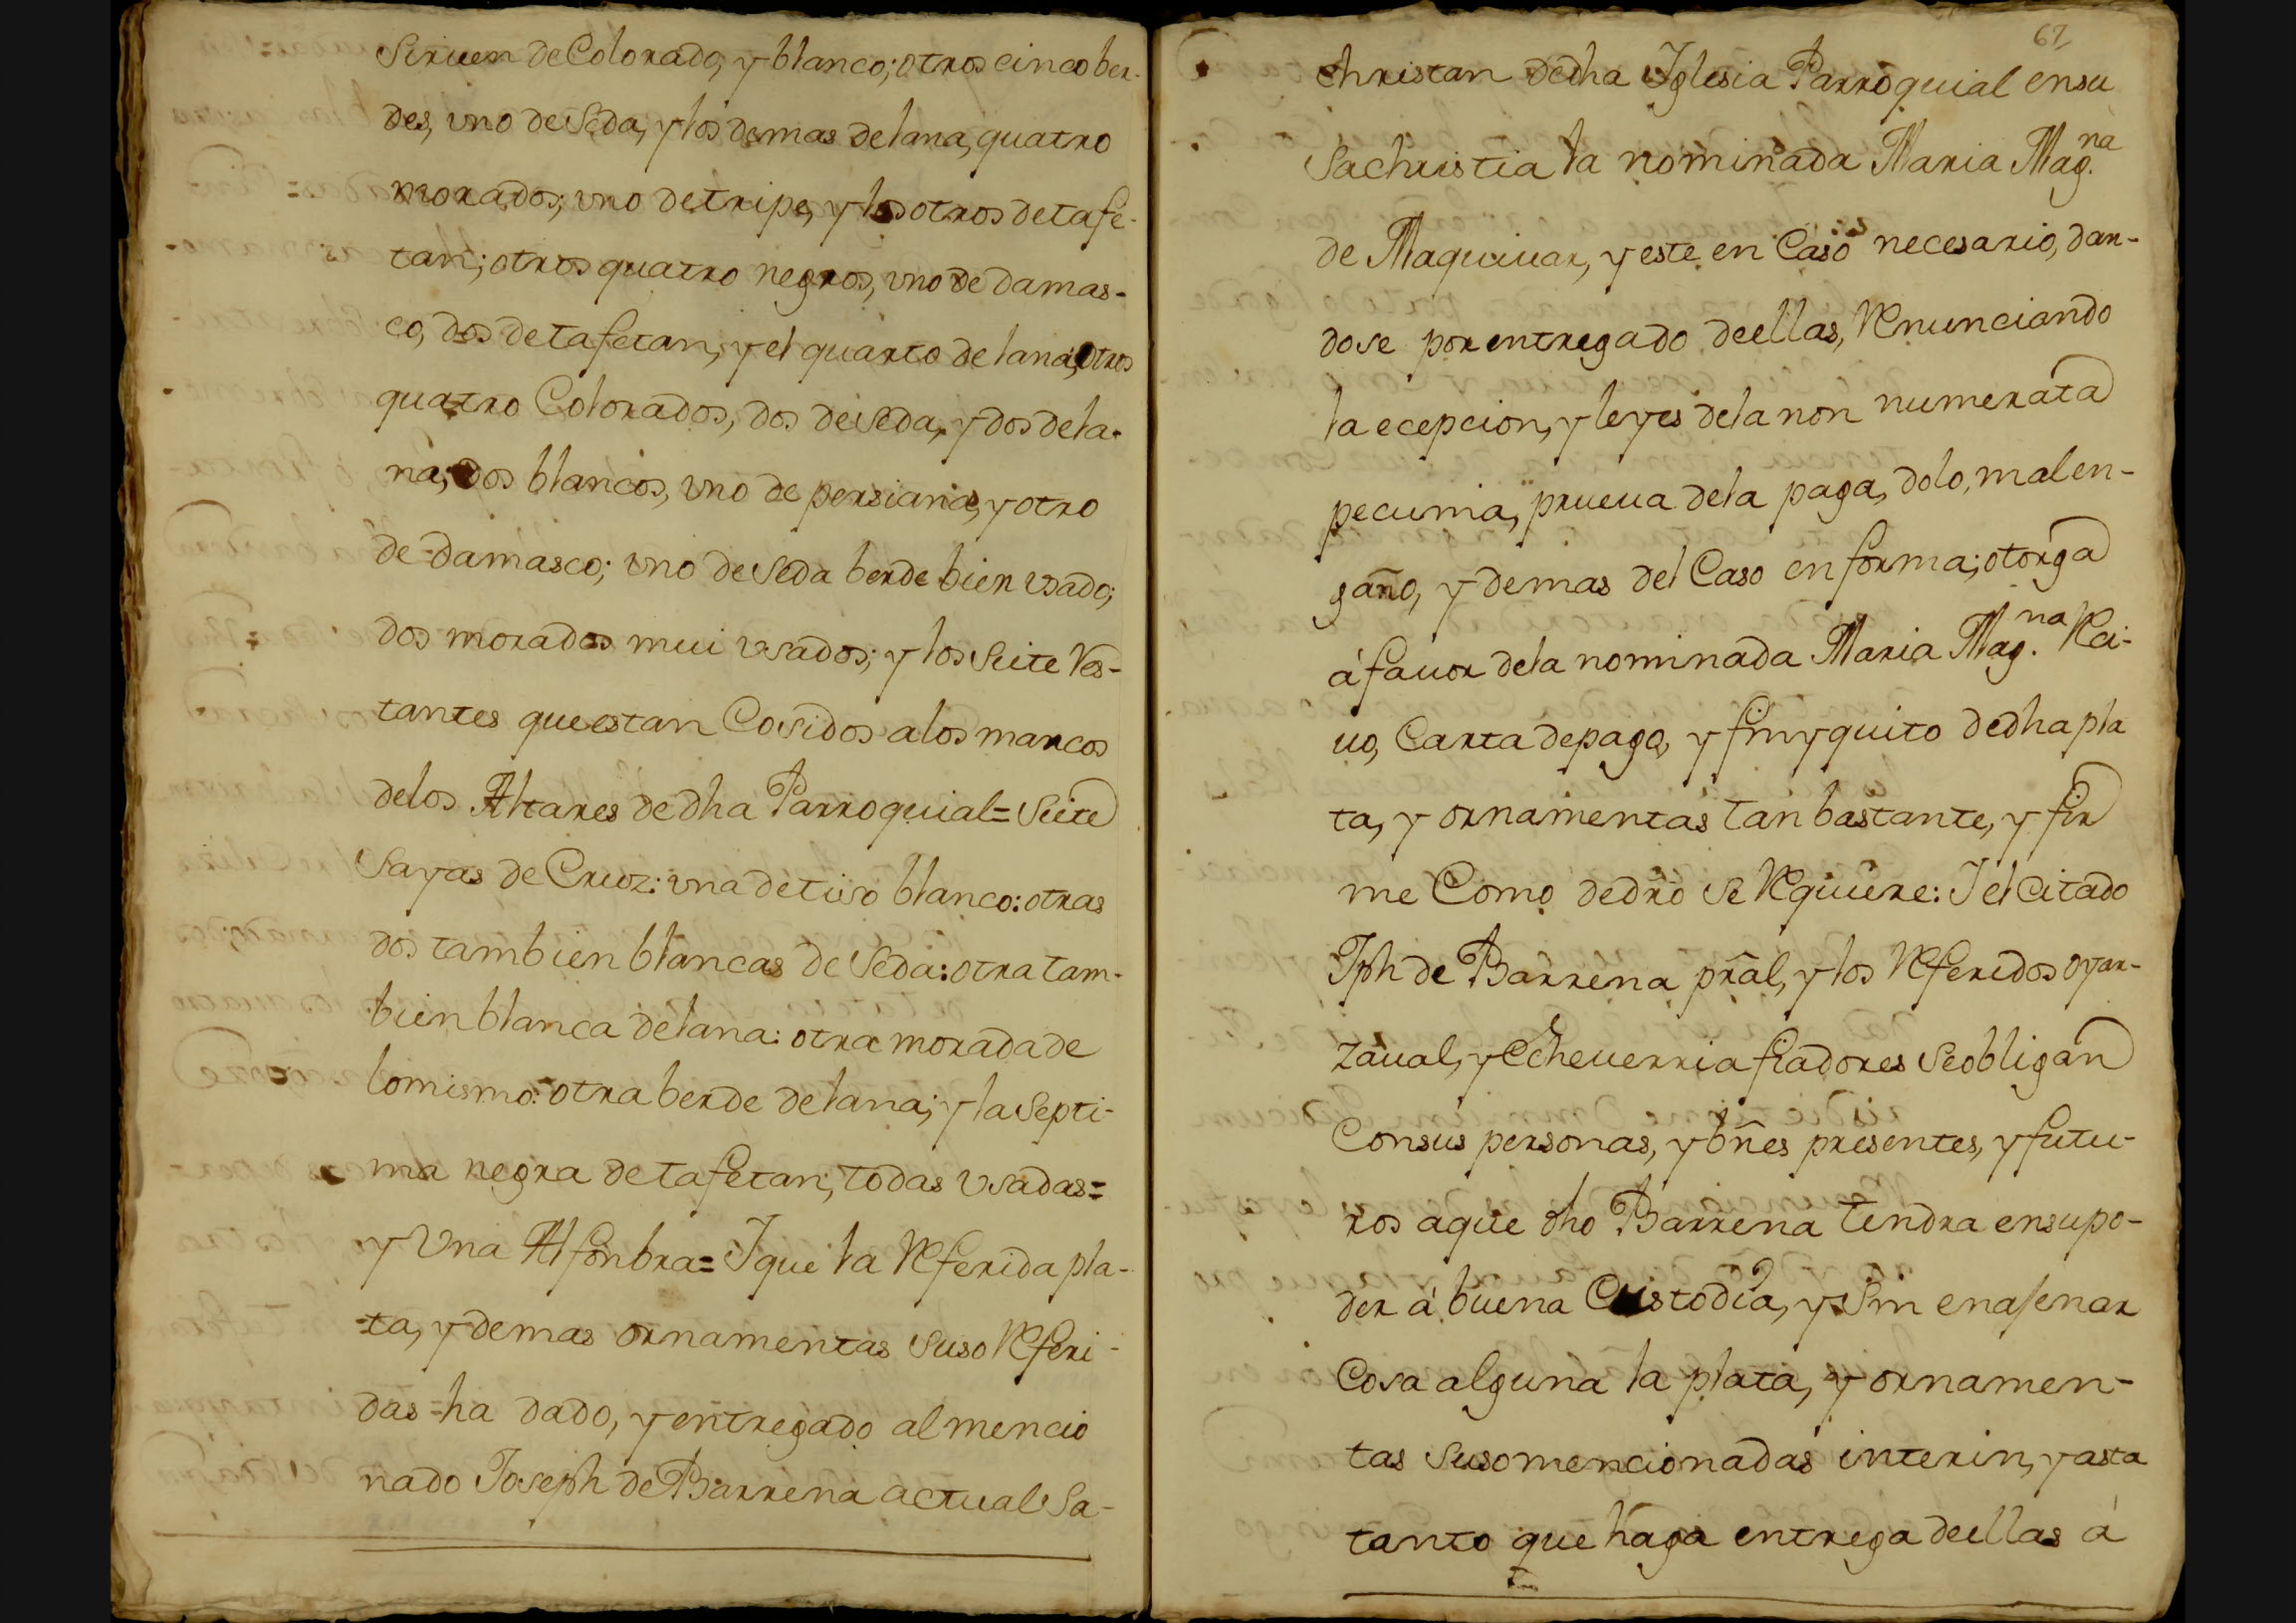 Siruen de Colorado, y blanco; otros cinco ber-
des, vno de Seda, y los demas de lana, quatro
morados; vno de tripe, y los otros de tafe-
tan; otros quatro negros, vno de damas-
co, dos de tafetan, y el quarto de lana; otros
quatro Colorados, dos de Seda, y dos de la-
na; dos blancos, vno de persiana, y otro
de damasco; vno de Seda berde bien vsado;
dos morados mui vsados; y los Siete Res-
tantes que estan Cosidos a los marcos
delos Altares de dha Parroquial= Siete
Sayas de Cruz: vna de tiso blanco: otras
dos tambien blancas de Seda: otra tam-
bien blanca de lana: otra morada de
lo mismo: otra berde de lana; y la Septi-
ma negra de tafetan; todas vsadas=
y Vna Alfonbra= I que la Referida pla-
ta, y demas ornamentas suso Referi-
das ha dado, y entregado al mencio
nado Joseph de Barrena actual Sa-
67
christan de dha Iglesia Parroquial en su
Sachristia la nominada Maria Mag.na
de Maquiuar, y este en Caso necesario, dan-
dose por entregado de ellas, Renunciando
la ecepcion, y leyes de la non numerata
pecunia, prueua de la paga, dolo, mal en-
gaño, y demas del Caso en forma; otorga
á fauor de la nominada Maria Mag.na Reci-
uo, Carta de pago, y fin y quito de dha pla
ta, y ornamentas tan bastante, y fir
me Como de dro se Requiere: I el Citado
Jph de Barrena pral, y los Referidos oyar-
zaual, y Echeuerria fiadores Se obligan
Con sus personas, y bñes presentes, y futu-
ros a que dho Barrena tendra en su po-
der á buena Custodia, y Sin enajenar
Cosa alguna la plata, y ornamen-
tas susomencionadas interin, y asta
tanto que haga entrega de ellas á